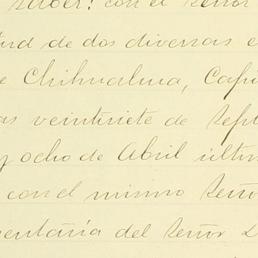 saber: con el Señor
tud de dos diversas e
e Chihuahua, Capi
as veintisiete de Sept
y ocho de Abril últim
con el mismo Seño
mentaría del Señor D